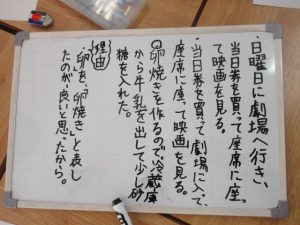 ・日曜日に劇場へ行き、
当日券を買って座席に座っ
て映画を見る。
・当日券を買って劇場に入って、
座席に座って映画を見る。
◎卵焼きを作るので、冷蔵庫
から牛乳を出して少し砂
糖を入れた。
理由
・「卵を」「卵焼き」と表し
たのが、良いと思ったから。